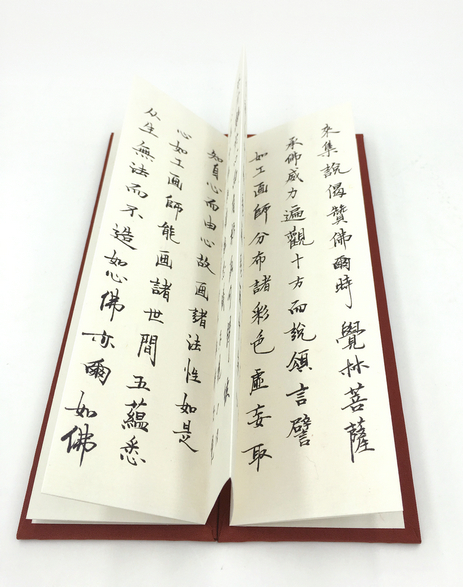 来集說偈贊佛爾時覺林菩薩
承佛威力遍觀十方而說頌言譬
如工画師分布諸彩色虛妄取
知心而由心故画諸法性如是
心如工画師能画諸世間五蘊悉
从生無法而不造如心佛亦爾如佛